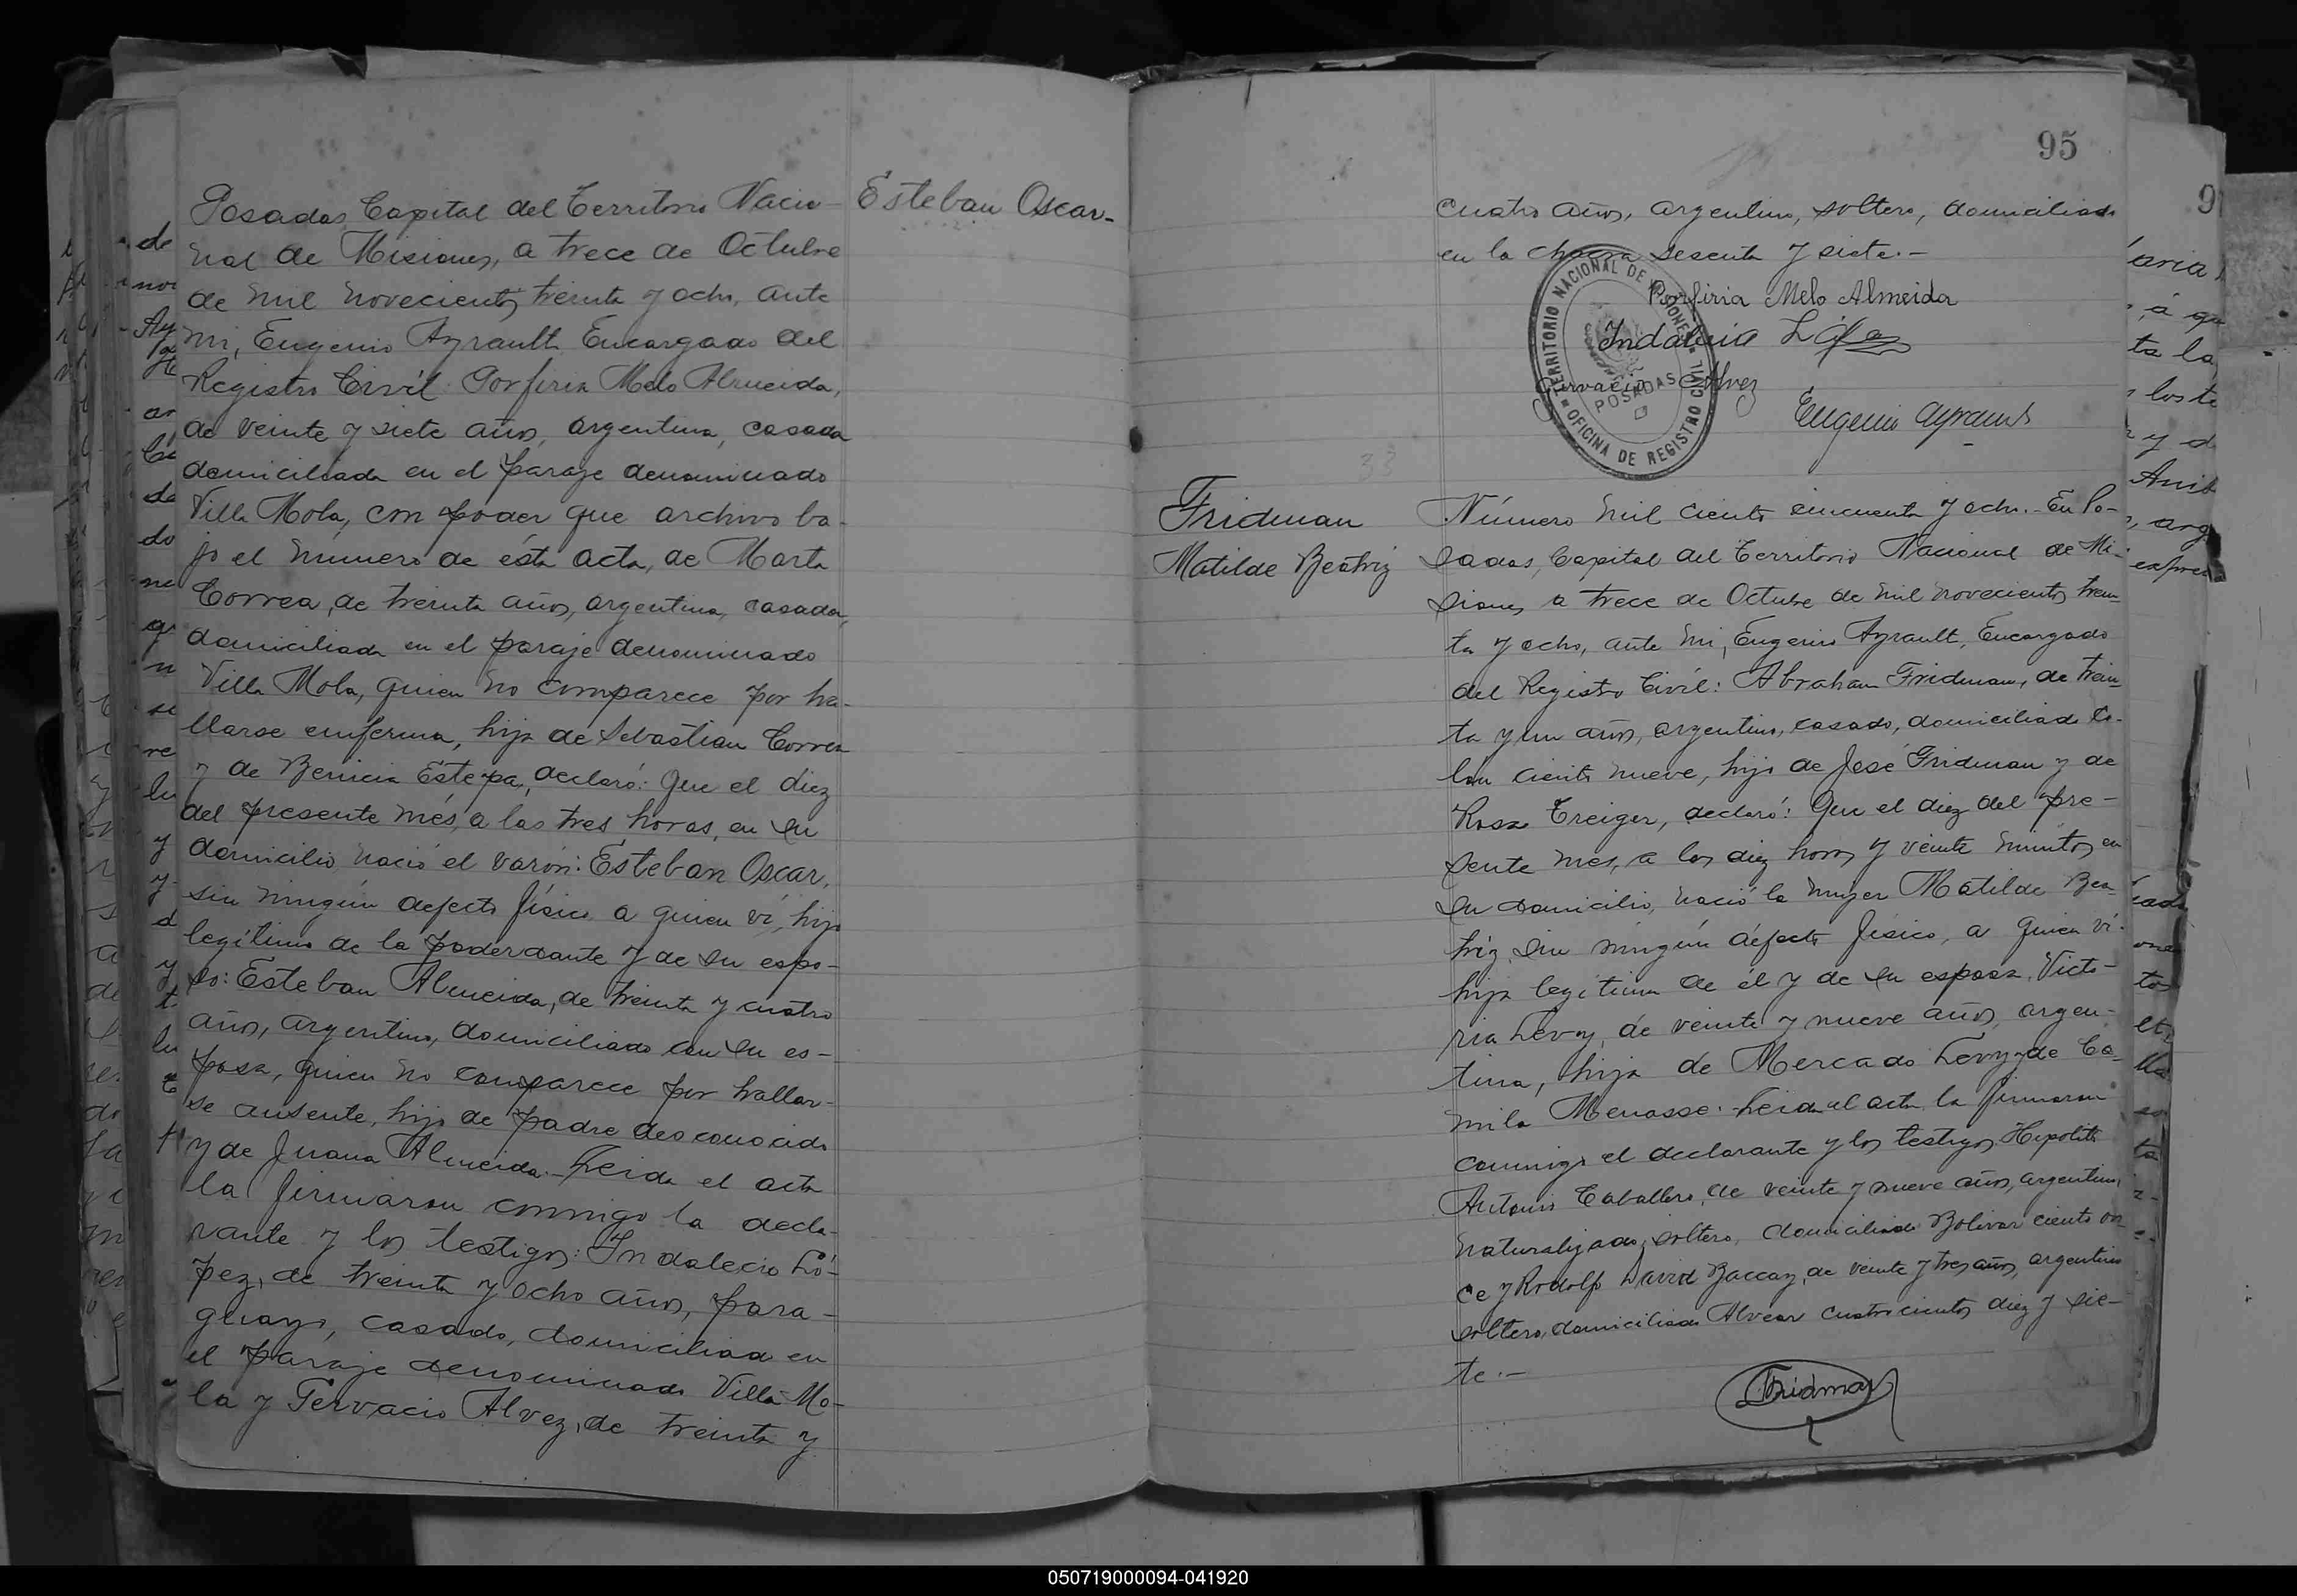 Posadas, Capital del Territorio Nacio-
nal de Misiones, a trece de Octubre
de mil novecientos treinta y ocho, ante
mi, Eugenio Ayrault Encargado del
Registro Civíl: Porfiria Melo Almeida,
de veinte y siete años, argentina, casada
domiciliada en el paraje denominado
Villa Mola, con poder que archivo ba-
jo el número de ésta acta, de Marta
Correa, de treinta años, argentina, casada,
domiciliada en el paraje denominado
Villa Mola, quien no comparece por ha-
llarse enferma, hija de Sebastian Correa
y de Benicia Estepa, declaró: Que el diez
del presente més, a las tres horas, en su
domicilio, nació el varón: Esteban Oscar,
sin ningún defecto físico a quien ví, hijo
legítimo de la poderdante y de su espo-
so: Esteban Almeida, de treinta y cuatro
años, argentino, domiciliado con su es-
posa, quien no comparece por hallar-
se ausente, hijo de padre desconocido
y de Juana Almeida.- Leida el acta
la firmaron conmigo la decla-
rante y los testigos: Indalecio Ló-
pez, de treinta y ocho años, para-
guayo, casado, domiciliad en
el paraje denominado Villa Mo-
la y Gervacio Alvez, de treinta y
Esteban Oscar-
95
cuatro años, argentino, soltero, domiciliado
en la chacra sesenta y siete.-
Porfiria Melo Almeida
Indalecio López
Gervacio Alvez
Eugenio Ayrault
TERRITORIO NACIONAL DE MISIONES
POSADAS
OFICINA DE REGISTRO CIVIL
33
Fridman
Matilde Beatriz
Número mil ciento cincuenta y ocho.- En Po-
sadas, Capital del Territorio Nacional de Mi-
siones a trece de Octubre de mil novecientos trein-
ta y ocho, ante mi, Eugenio Ayrault, Encargado
del Registro Civíl: Abraham Fridman, de trein-
ta y un años, argentino, casado, domiciliado Co-
lon ciento nueve, hijo de José Fridman y de
Rosa Treiger, declaró: Que el diez del pre-
sente mes, a las diez horas y veinte minutos en
su domicilio, nació la mujer Matilde Bea-
triz, sin ningún defecto físico, a quien ví.
hija legítima de él y de su esposa Victo-
ria Levy, de veinte y nueve años, argen-
tina, hija de Mercado Levy y de Ca-
mila Menasse. Leida el acta, la firmaron
conmigo el declarante y los testigos Hipolito
Antonio Caballero, de veinte y nueve años, argentino,
naturalizado, soltero, domiciliado Bolivar ciento on-
ce y Rodolfo David Baccay, de veinte y tres años, argentino
soltero, domiciliado Alvear cuatrocientos diez y sie-
te.-
Fridman
050719000094-041920